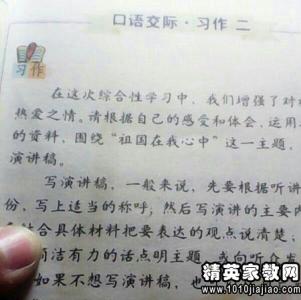 口语交际·习作 二
习作
在这次综合性学习中，我们增强了对
热爱之情。请根据自己的感受和体会，运用
的资料，围绕“祖国在我心中”这一主题，
演讲稿。
写演讲稿，一般来说，先要根据听讲
份，写上适当的称呼；然后写演讲的主要内
合具体材料把要表达的观点说清楚，
简洁有力的话点明主题，或向听众
如果不想写演讲稿，也
精英家教网
www.1010jiajiao.com